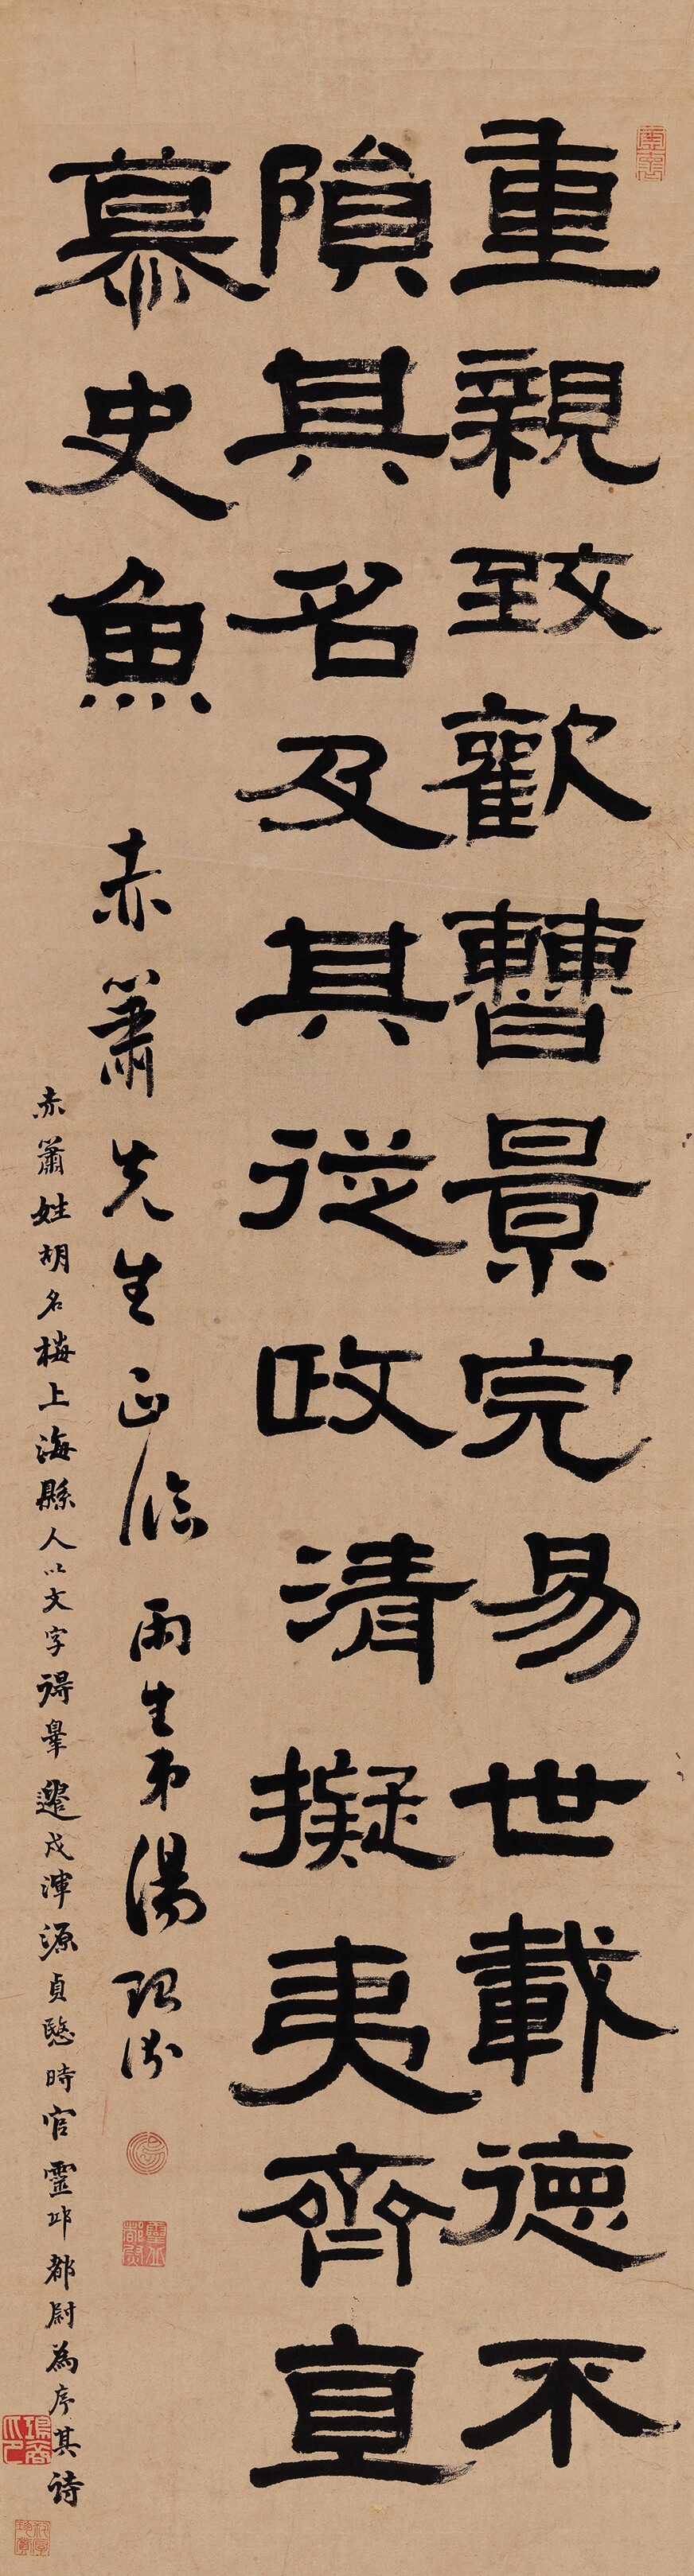 重親致歡曹景完易世載德不
隕其名及其從政清擬夷齊直
慕史魚
赤簫先生正臨 雨生弟湯貽汾
赤簫姓胡名梅上海縣人以文字得辠遣戍渾源貞愍時官靈邱都尉為序其詩